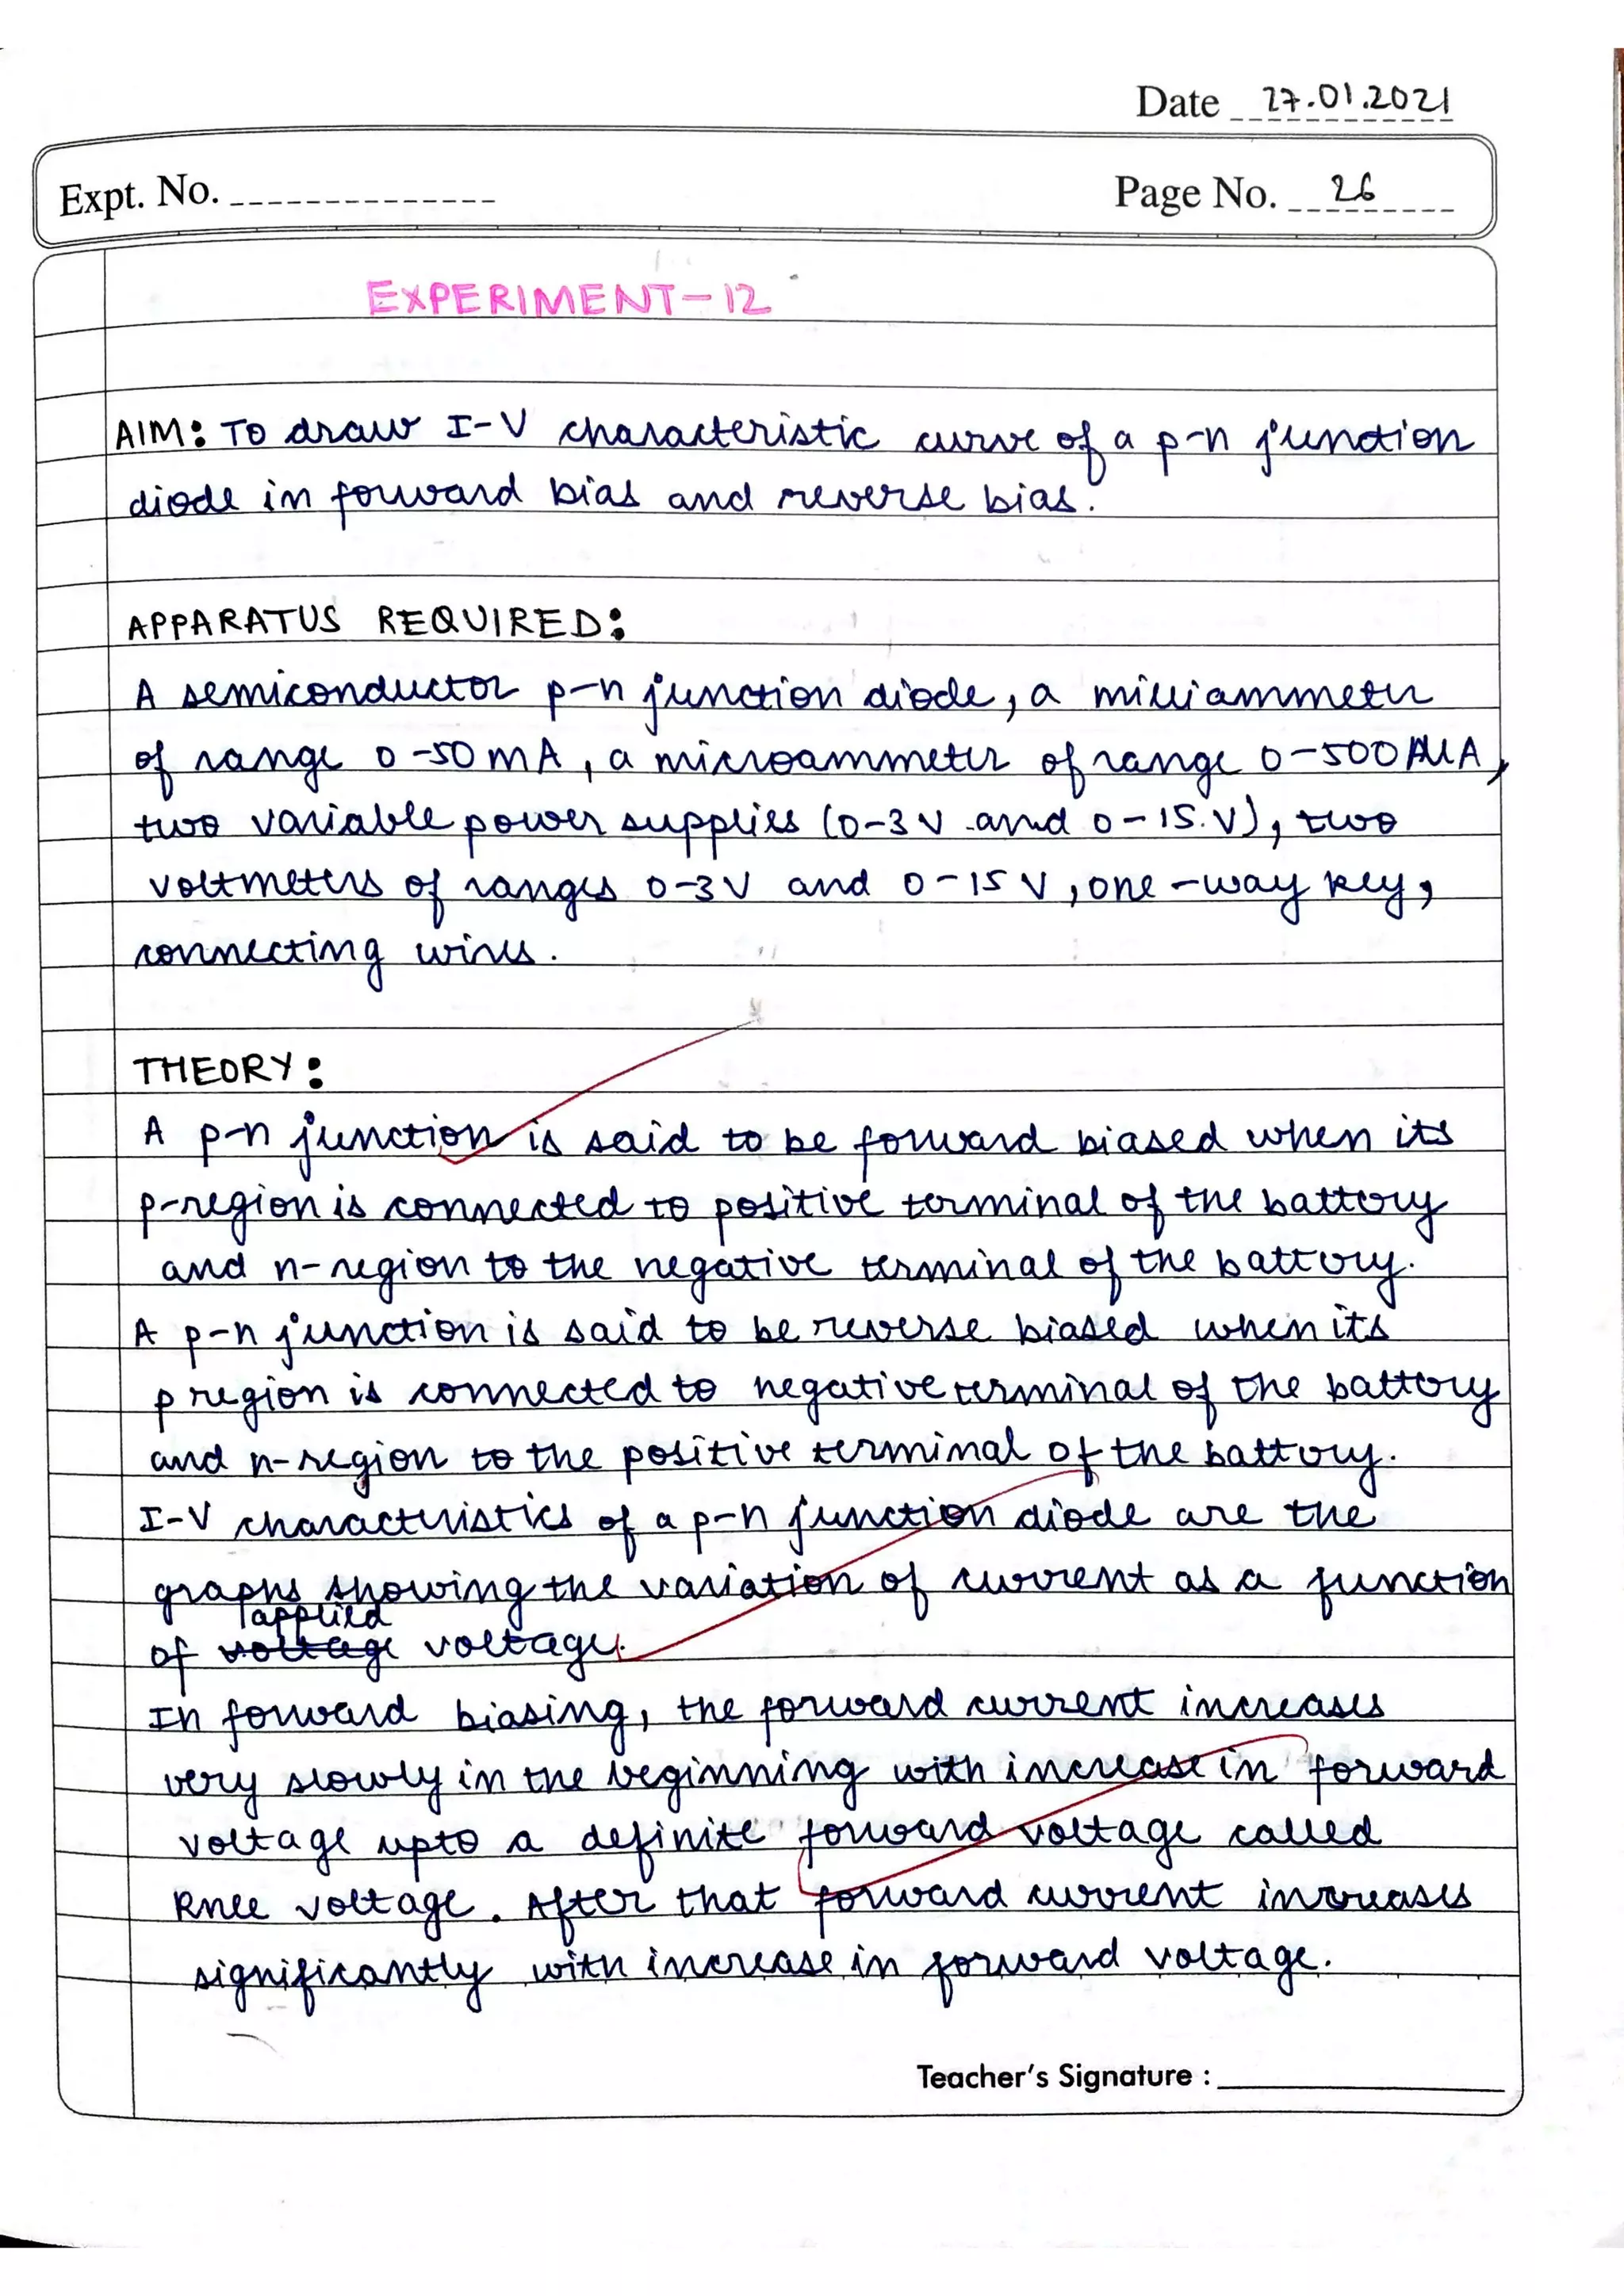 Date 27.01.2021
Expt. No.
Page No. 26
EXPERIMENT-12
AIM: To draw I-V characteristic curve of a p-n junction
diode in forward bias and reverse bias.
APPARATUS REQUIRED:
A semiconductor p-n junction diode, a milliammeter
of range 0-50 mA, a microammeter of range 0-500 μA,
two variable power supplies (0-3 V and 0-15 V), two
voltmeters of ranges 0-3 V and 0-15 V, one-way key,
connecting wires.
THEORY:
A p-n junction is said to be forward biased when its
p-region is connected to positive terminal of the battery
and n-region to the negative terminal of the battery.
A p-n junction is said to be reverse biased when its
p region is connected to negative terminal of the battery
and n-region to the positive terminal of the battery.
I-V characteristics of a p-n junction diode are the
graphs showing the variation of current as a function
applied
of voltage voltage.
In forward biasing, the forward current increases
very slowly in the beginning with increase in forward
voltage upto a definite forward voltage called
Knee voltage. After that forward current increases
significantly with increase in forward voltage.
Teacher's Signature :